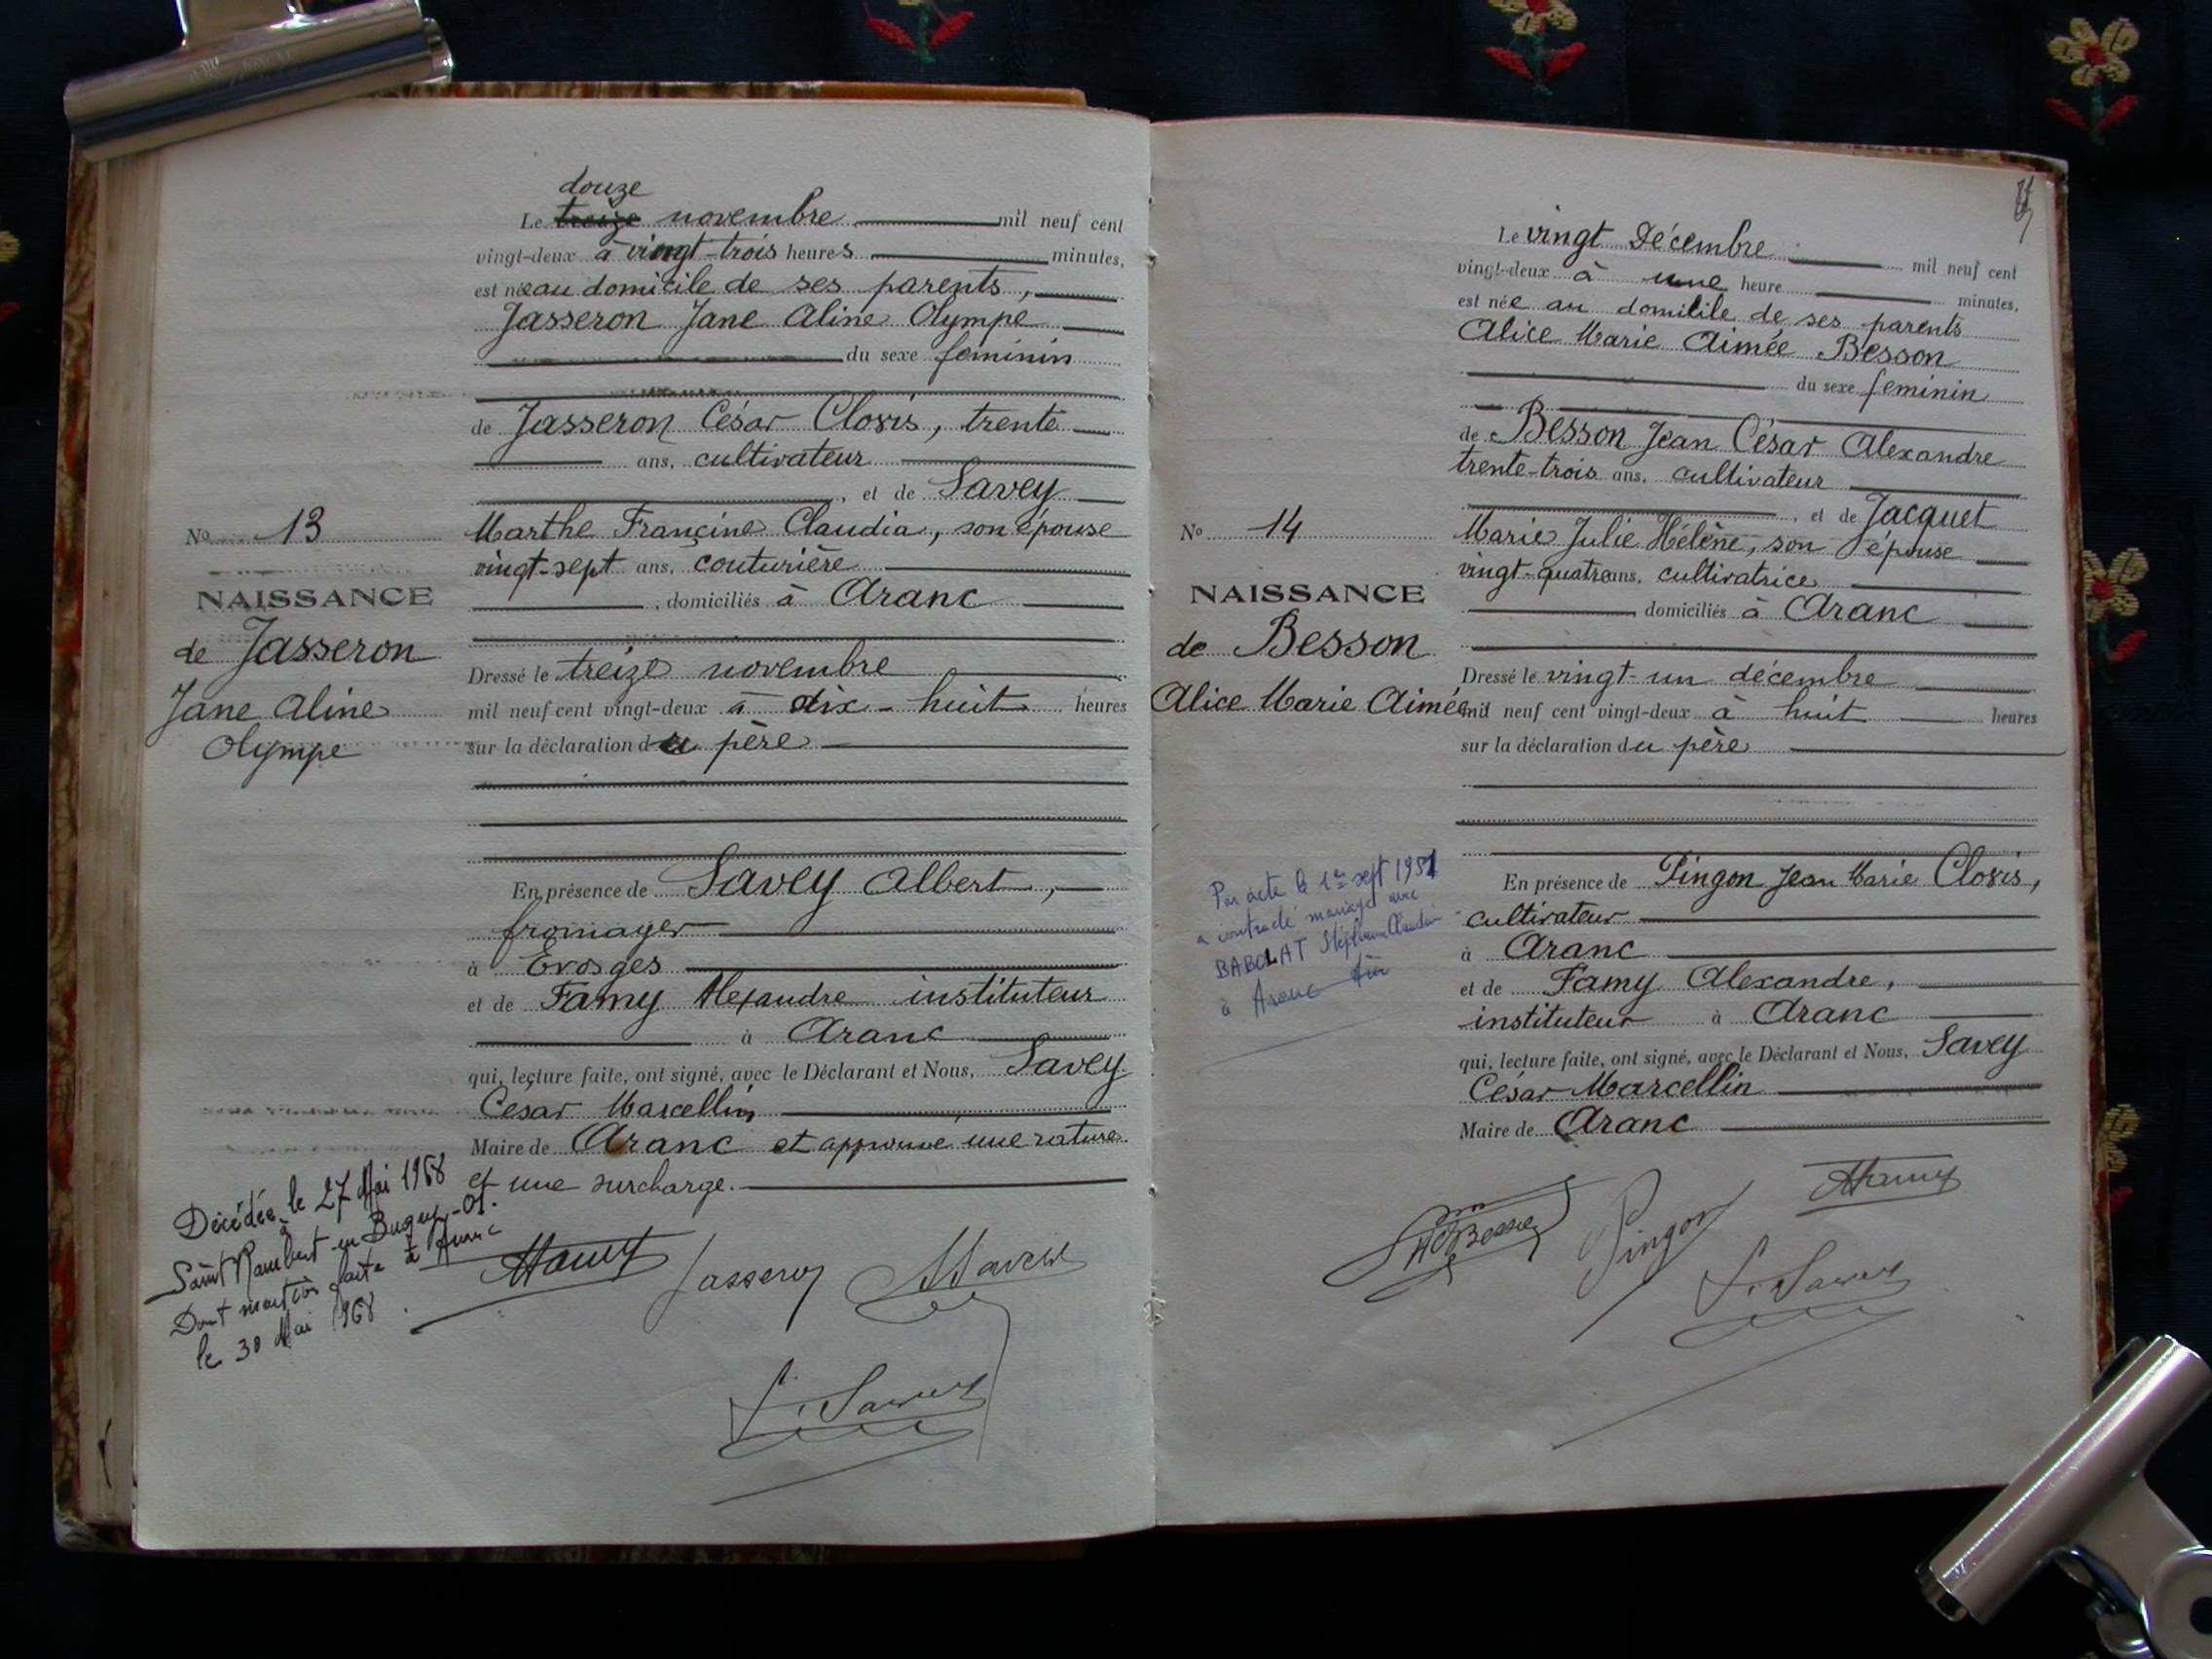 douze
Le treize novembre mil neuf cent
vingt-deux à vingt-trois heures minutes,
est née au domicile de ses parents,
Jasseron Jane Aline Olympe
du sexe feminin
de Jasseron César Clovis, trente
ans, cultivateur
, et de Savey
Marthe Francine Claudia, son épouse
vingt-sept ans, couturière
, domiciliés à Aranc
Dressé le treize novembre
mil neuf cent vingt-deux à dix-huit heures
sur la déclaration du père
En présence de Savey Albert,
fromager
à Evosges
et de Famy Alexandre instituteur
à Aranc
qui, lecture faite, ont signé, avec le Déclarant et Nous, Savey
César Marcellin,
Maire de Aranc et approuve une rature
et une surcharge.
No 13
NAISSANCE
de Jasseron
Jane Aline
Olympe
Décédée le 27 Mai 1968
à
Saint Rambert en Bugey
Dont mention faite à Aranc
le 30 Mai 1968
Jasseron
Le vingt Décembre mil neuf cent
vingt-deux à une heure minutes,
est née au domicile de ses parents
Alice Marie Aimée Besson
du sexe feminin
de Besson Jean César Alexandre
trente-trois ans, cultivateur
, et de Jacquet
Marie Julie Hélène, son épouse
vingt-quatre ans, cultivatrice
domiciliés à Aranc
Dressé le vingt-un décembre
mil neuf cent vingt-deux à huit heures
sur la déclaration du père
En présence de Pingon Jean Marie Clovis,
cultivateur
à Aranc
et de Famy Alexandre,
instituteur à Aranc
qui, lecture faite, ont signé, avec le Déclarant et Nous, Savey
César Marcellin
Maire de Aranc
No 14
NAISSANCE
de Besson
Alice Marie Aimée
Par acte le 1er sept 1951
a contracté mariage avec
BABOLAT Stéphane Claudin
à Aranc Ain
Besson
Pingon